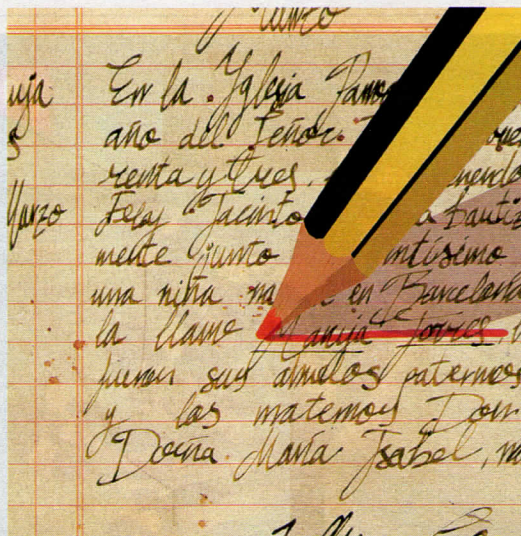 Junto
uja En la Yglesia Parro
s año del Señor
renta y tres.
Marzo Fray Jacinto Bautiz
mente junto ntísimo
una niña na e en Barcelona
la llamé María de Torres,
fueron sus abuelos paternos
y los maternos Don
Doña María Isabel, na